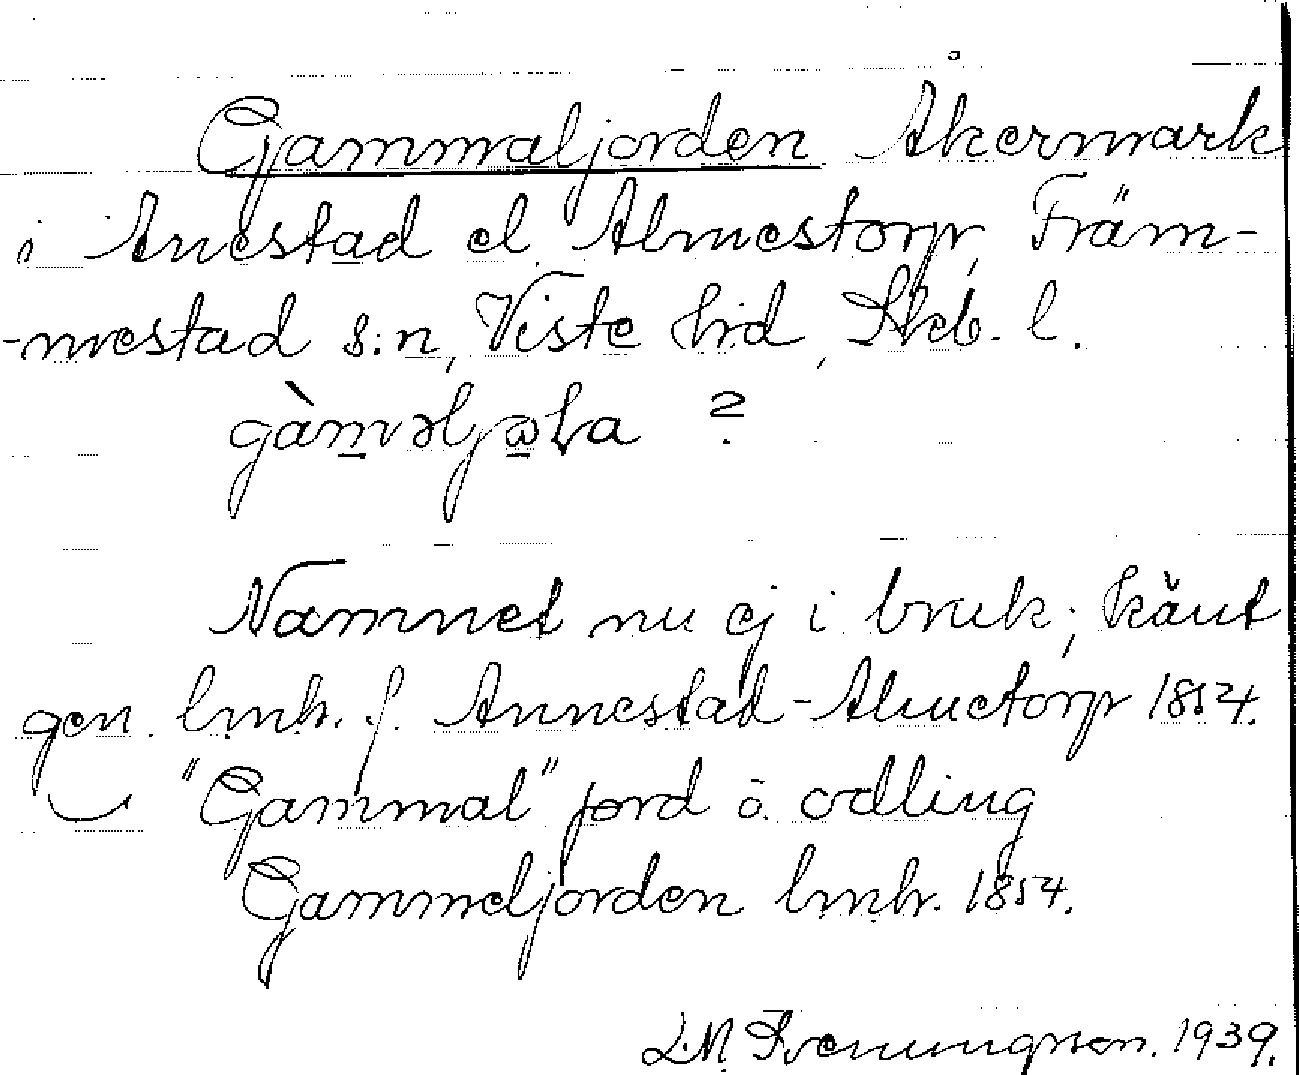 Gammaljorden Åkermark
i Anestad el. Almestorp, Främ-
-mestad s:n, Viste hrd, Skb. l.
gàməljoɭa ?
Namnet nu ej i bruk; känt
gen. lmh. f. Annestad-Almetorp 1854.
"Gammal" jord o. odling
Gammeljorden lmh. 1854.
L.M. Svenungsson. 1939.